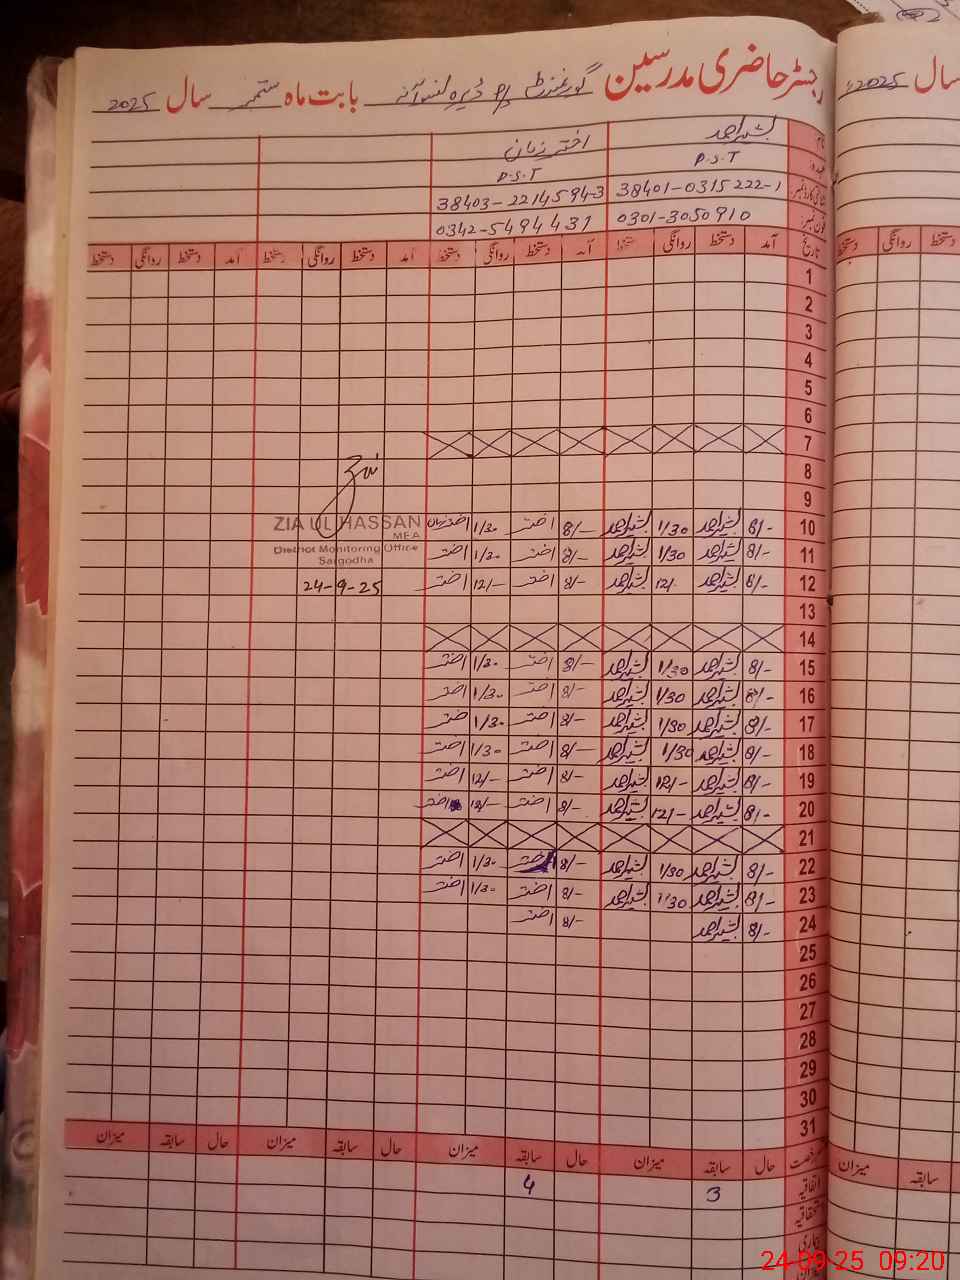 رجسٹر حاضری مدرسین گورنمنٹ P/S ڈیرہ بابت ماہ ستمبر سال 2025
سال 2025ء
نام بشیر احمد اختر زمان
عہدہ P.S.T P.S.T
شناختی کارڈ نمبر: 38401-0315222-1 38403-2214594-3
فون نمبر: 0301-3050910 0342-5494431
تاریخ آمد دستخط روانگی دستخط آمد دستخط روانگی دستخط آمد دستخط روانگی دستخط آمد دستخط روانگی دستخط
دستخط روانگی دستخط
1
2
3
4
5
6
7
8
9
10 8/- بشیر احمد 1/30 بشیر احمد 8/- اختر 1/30 اختر زمان
11 8/- بشیر احمد 1/30 بشیر احمد 8/- اختر 1/30 اختر
12 8/- بشیر احمد 12/- بشیر احمد 8/- اختر 12/- اختر
ZIA UL HASSAN
MEA
District Monitoring Office
Sargodha
24-9-25
13
14
15 8/- بشیر احمد 1/30 بشیر احمد 8/- اختر 1/30 اختر
16 8/- بشیر احمد 1/30 بشیر احمد 8/- اختر 1/30 اختر
17 8/- بشیر احمد 1/30 بشیر احمد 8/- اختر 1/30 اختر
18 8/- بشیر احمد 1/30 بشیر احمد 8/- اختر 1/30 اختر
19 8/- بشیر احمد 12/- بشیر احمد 8/- اختر 12/- اختر
20 8/- بشیر احمد 12/- بشیر احمد 8/- اختر 12/- اختر
21
22 8/- بشیر احمد 1/30 بشیر احمد 8/- اختر 1/30 اختر
23 8/- بشیر احمد 1/30 بشیر احمد 8/- اختر 1/30 اختر
24 8/- بشیر احمد 8/- اختر
25
26
27
28
29
30
31
رخصت حال سابقہ میزان حال سابقہ میزان حال سابقہ میزان حال سابقہ میزان
میزان سابقہ
اتفاقیہ 3 4
استحقاقیہ
بیماری
24-09-25 09:20